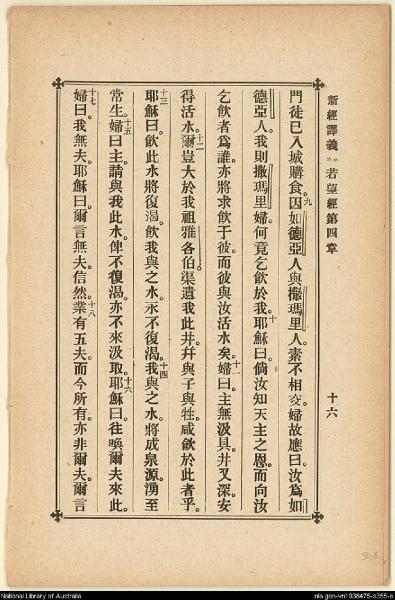 新經譯義 若望經第四章 十六
門徒已入城購食。九因如德亞人與撒瑪里人。素不相交。婦故應曰。汝爲如
德亞人。我則撒瑪里婦。何竟乞飲於我。十耶穌曰。倘汝知天主之恩。而向汝
乞飲者爲誰。亦將求飲于彼。而彼與汝活水矣。十一婦曰。主無汲具。井又深。安
得活水。十二爾豈大於我祖雅各伯。渠遺我此井。幷與子與牲。咸飲於此者乎。
十三耶穌曰。飲此水將復渴。飲我與之水。永不復渴。十四我與之水。將成泉源。湧至
常生。十五婦曰。主請與我此水。俾不復渴。亦不來汲取。十六耶穌曰。往喚爾夫來此。
十七婦曰。我無夫。耶穌曰。爾言無夫。信然。十八業有五夫。而今所有。亦非爾夫。爾言
National Library of Australia
nla.gen-vn1938475-s355-e